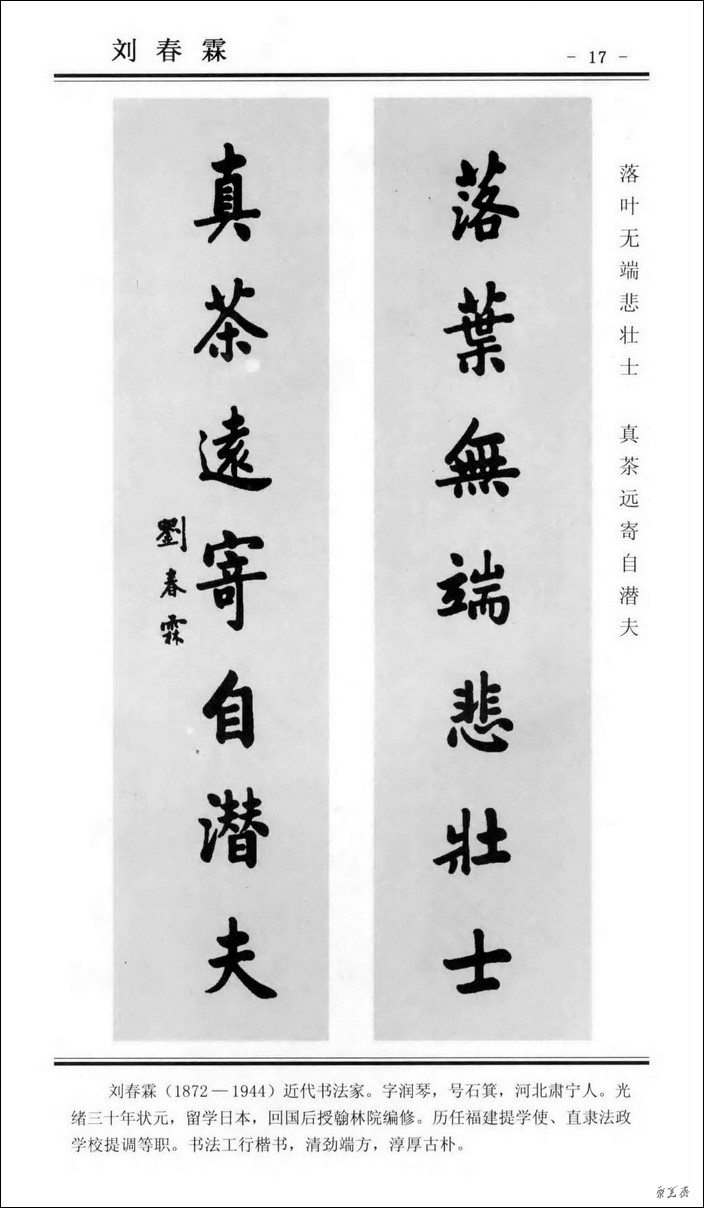 刘春霖
- 17 -
落叶无端悲壮士 真茶远寄自潜夫
落葉無端悲壯士
真茶遠寄自潜夫
劉春霖
刘春霖（1872—1944）近代书法家。字润琴，号石箕，河北肃宁人。光
绪三十年状元，留学日本，回国后授翰林院编修。历任福建提学使、直隶法政
学校提调等职。书法工行楷书，清劲端方，淳厚古朴。